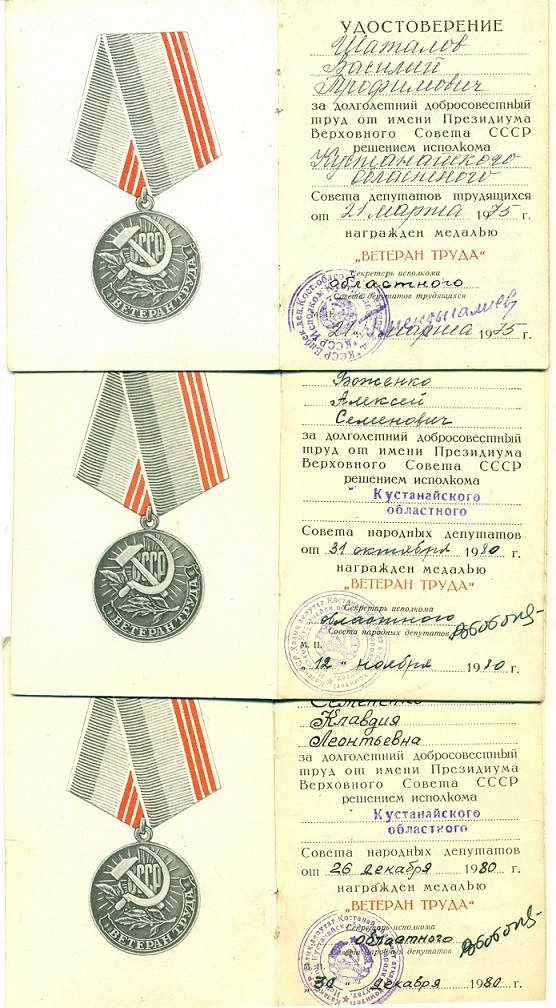 УДОСТОВЕРЕНИЕ
Шаталов
Василий
Трофимович
за долголетний добросовестный
труд от имени Президиума
Верховного Совета СССР
решением исполкома
Кустанайского
областного
Совета депутатов трудящихся
от 21 марта 1975 г.
награжден медалью
„ВЕТЕРАН ТРУДА“
Секретарь исполкома
областного
Совета депутатов трудящихся
21 марта 1975 г.
СССР
ВЕТЕРАН ТРУДА
Боженко
Алексей
Семенович
за долголетний добросовестный
труд от имени Президиума
Верховного Совета СССР
решением исполкома
Кустанайского
областного
Совета народных депутатов
от 31 октября 1980 г.
награжден медалью
„ВЕТЕРАН ТРУДА“
Секретарь исполкома
областного
Совета народных депутатов
М. П.
„12“ ноября 1980 г.
СССР
ВЕТЕРАН ТРУДА
Клавдия
Леонтьевна
за долголетний добросовестный
труд от имени Президиума
Верховного Совета СССР
решением исполкома
Кустанайского
областного
Совета народных депутатов
от 26 декабря 1980 г.
награжден медалью
„ВЕТЕРАН ТРУДА“
Секретарь исполкома
областного
Совета народных депутатов
декабря 1980 г.
СССР
ВЕТЕРАН ТРУДА